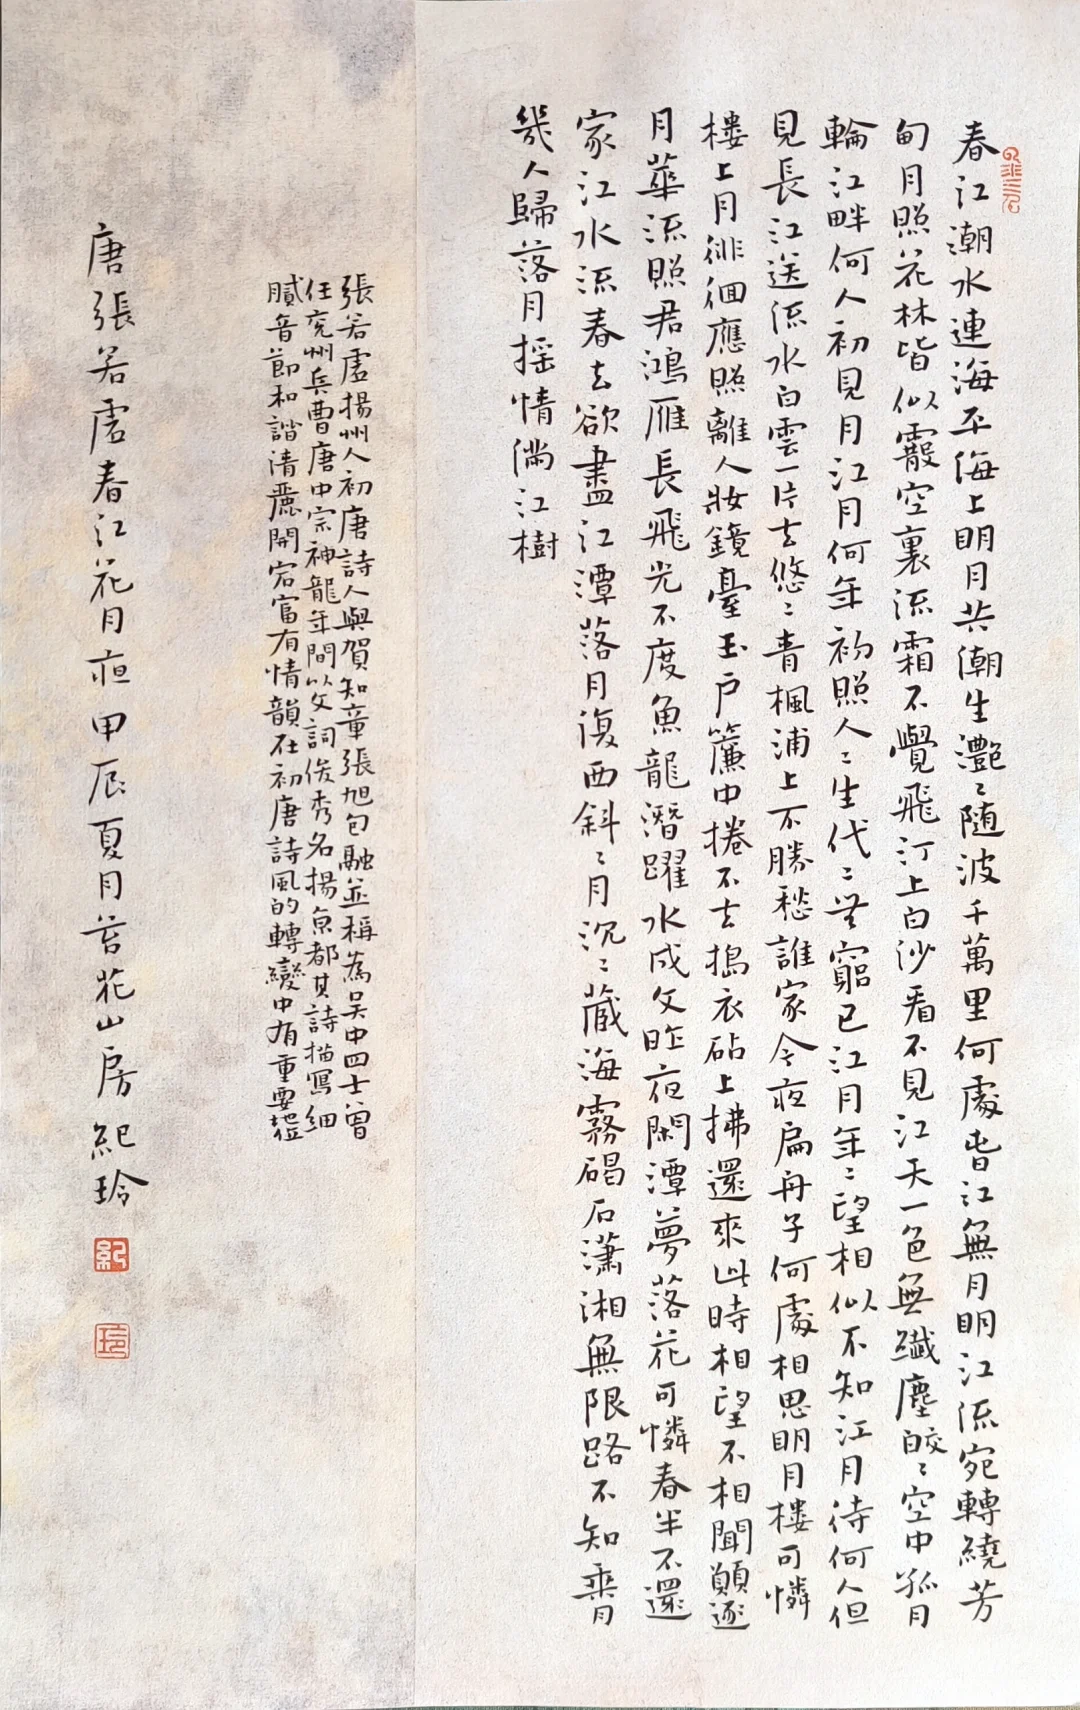 春江潮水連海平海上明月共潮生灩〻随波千萬里何處春江無月明江流宛轉繞芳
甸月照花林皆似霰空裏流霜不覺飛汀上白沙看不見江天一色無纖塵皎〻空中孤月
輪江畔何人初見月江月何年初照人〻生代〻無窮已江月年〻望相似不知江月待何人但
見長江送流水白雲一片去悠〻青楓浦上不勝愁誰家今夜扁舟子何處相思明月樓可憐
樓上月徘徊應照離人妝鏡臺玉户簾中捲不去搗衣砧上拂還來此時相望不相聞願逐
月華流照君鴻雁長飛光不度魚龍潛躍水成文昨夜閑潭夢落花可憐春半不還
家江水流春去欲盡江潭落月復西斜〻月沉〻藏海霧碣石瀟湘無限路不知乘月
幾人歸落月摇情满江樹
張若虚揚州人初唐詩人與賀知章張旭包融並稱為吴中四士曾
任兖州兵曹唐中宗神龍年間以文詞俊秀名揚京都其詩描寫細
膩音節和諧清麗開宕富有情韻在初唐詩風的轉變中有重要地位
唐張若虚春江花月夜甲辰夏月苔花山房紀玲
紀
玲